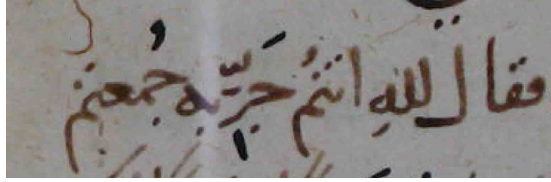 فقال للهِ انتمُ جَرِّبه جُمعتم